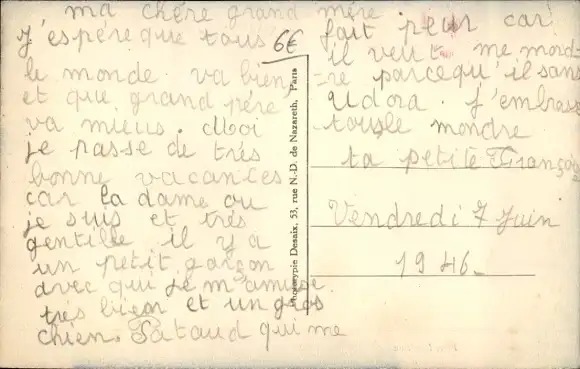 ma chère grand mère
J'espère que tous
le monde va bien
et que grand père
va mieus. Moi
je passe de très
bonne vacances
car la dame ou
je suis et très
gentille il y a
un petit garçon
avec qui je m'amuse
très bien et un gros
chien. Pataud qui me
6€
fait peur car
il veut me mord
re parcequ'il sans
udora. J'embrass
tousle mondre
ta petite François
Vendredi 7 Juin
1946
Phototypie Desaix, 53, rue N.-D. de Nazareth, Paris